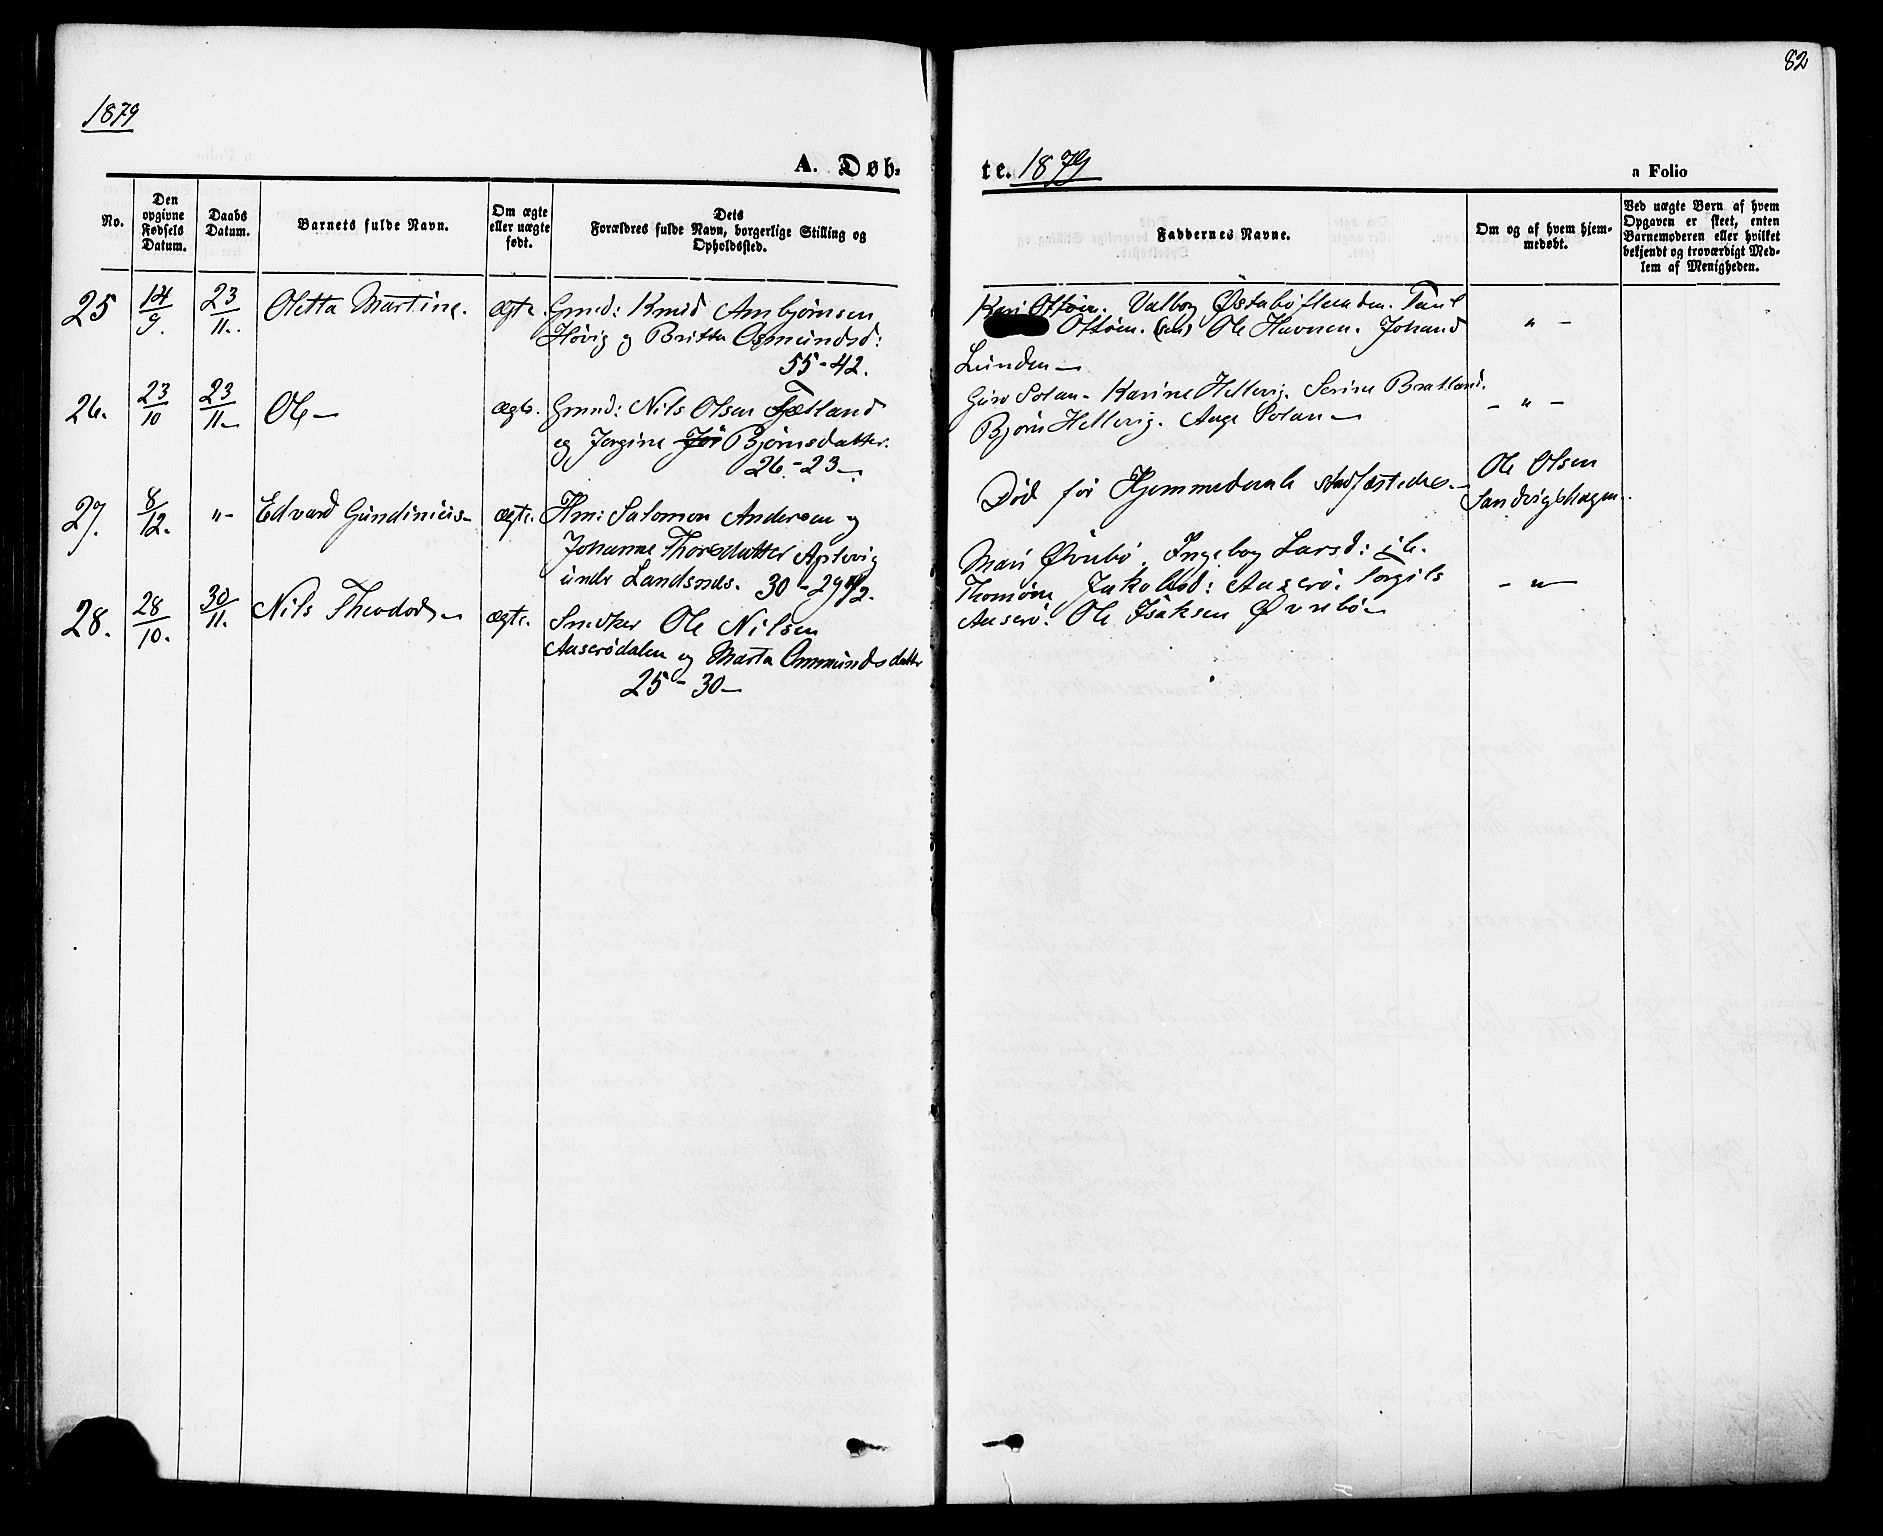 1879
A. Døb-
No.
Den opgivne Fødsels Datum.
Daabs Datum.
Barnets fulde Navn.
Om ægte eller uægte født.
Dets Forældres fulde Navn, borgerlige Stilling og Opholdssted.
25 14/9 23/11. Oletta Martine. ægte. Gmd: Knud Ambjörnsen
Hövig og Britta Osmundsd:
55-42.
26. 23/10 23/11 Ole ægte. Gmd: Nils Olsen Fjetland
og Jorgine Bjørnsdatter.
26-23
27. 8/12. " Edvard Gundinius ægte. Hm: Salomon Andersen og
Johanne Thorsdatter Aplevig
under Landsnes. 30-29 1/2.
28. 28/10. 30/11. Nils Theodor ægte. Snedker Ole Nilsen
Auserödalen og Marta Ommundsdatter
25-30
82
te. 1879
a Folio
Faddernes Navne.
Om og af hvem hjem-
medøbt.
Ved uægte Børn af hvem
Opgaven er skeet, enten
Barnemoderen eller hvilket
bekjendt og troværdigt Med-
lem af Menigheden.
Kari Ottöen. Valborg Östabö
Ottöen. (sen) Ole Havnen. Johan " -
Lunden
Guro Solan- Karine Hellevig. Serine Bratland.
Bjørn Hellevig. Aage Solan - - " -
Död før Hjemmedaab stadfæstedes. Ole Olsen
Sandvigshagen.
Mari Övrebö. Ingeborg Larsd: ib.
Thomöne Jakobsd: Auserö. Torgils - " -
Auserö. Ole Isaksen Övrebö